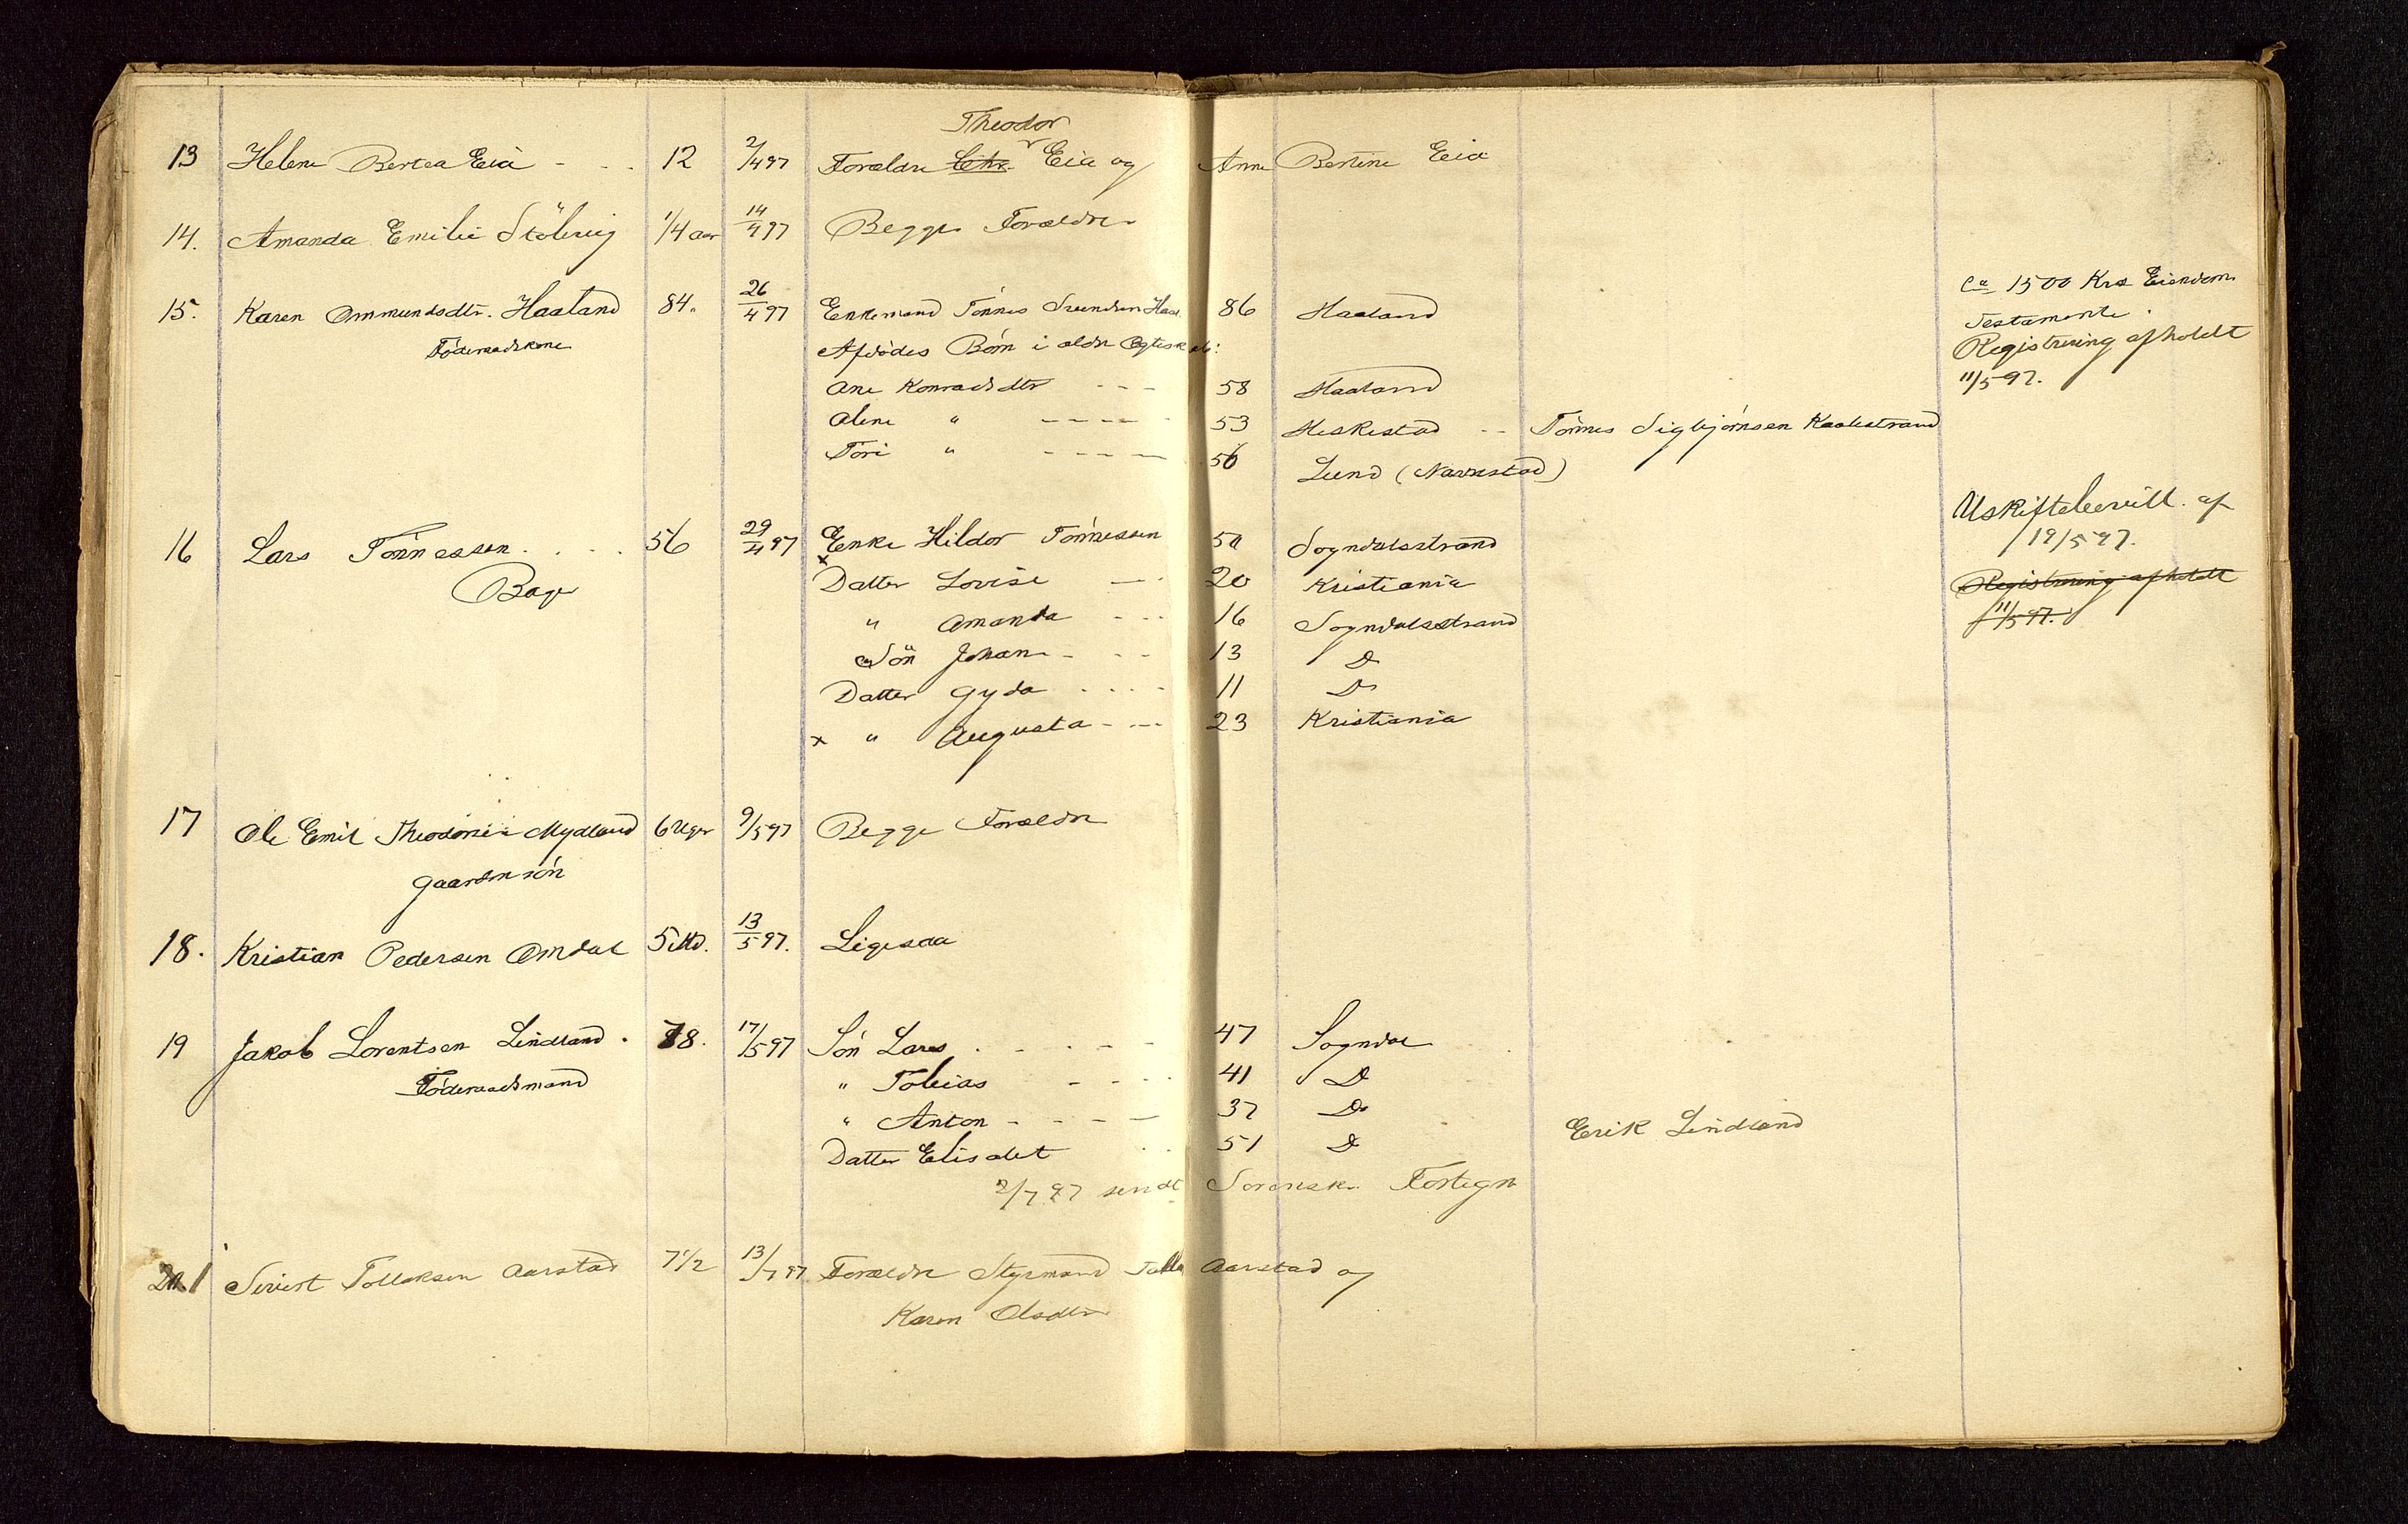 Theodor
13 Helene Bertea Eia - - . 12 2/4 97 Forældre Chr. Eia og Anne Bertine Eia
14. Amanda Emilie Stölsvig 1/4 aar 14/4 97 Begge Forældre
15. Karen Ommundsdtr. Haaland 84. 26/4 97 Enkemand Tönnes Svendsen Haal. 86 Haaland ca 1500 Krs Eiendom.
Testamente.
Föderaadskone Afdödes Börn i ældre Egteskab: Registrering afholdt
Ane Konradsdtr - - - 58 Haaland 11/5 97.
Olene " - - - - 53 Heskestad - - Tönnes Sigbjörnsen
Tori " - - - - 56 Lund (Navrestad)
Uskiftebevill. af
19/5 97.
16 Lars Tönnessen . . . . 56 29/4 97 Enke Hildor Tönnessen 50 Sogndalsstrand
Bager x Datter Lovise - - 20 Kristiania Registrering afholdt
" Amanda - - - 16 Sogndalsstrand 11/5 97.
Sön Johan - - - 13 Do
Datter Gyda - - - - 11 Do
x " Augusta - - - 23 Kristiania
17 Ole Emil Theodorie Mydland 6 Uger 9/5 97 Begge Forældre
Gaardm sön
18. Kristian Pedersen Omdal 5 Md. 13/5 97. Ligesaa
19 Jakob Lorentsen Lindland . 78. 17/5 97 Sön Lars . - - - - 47 Sogndal
Föderaadsmand " Tobias - - - - 41 Do
" Anton - - - - 37 Do
Datter Elisabet . . 51 Do Erik Lindland
2/7 97 sendt Sorensk. Fortegn
20.1 Sivert Tollaksen Aarstad 7 1/2 13/7 97. Forældre Styrmand Aarstad og
Karen Olsdtr